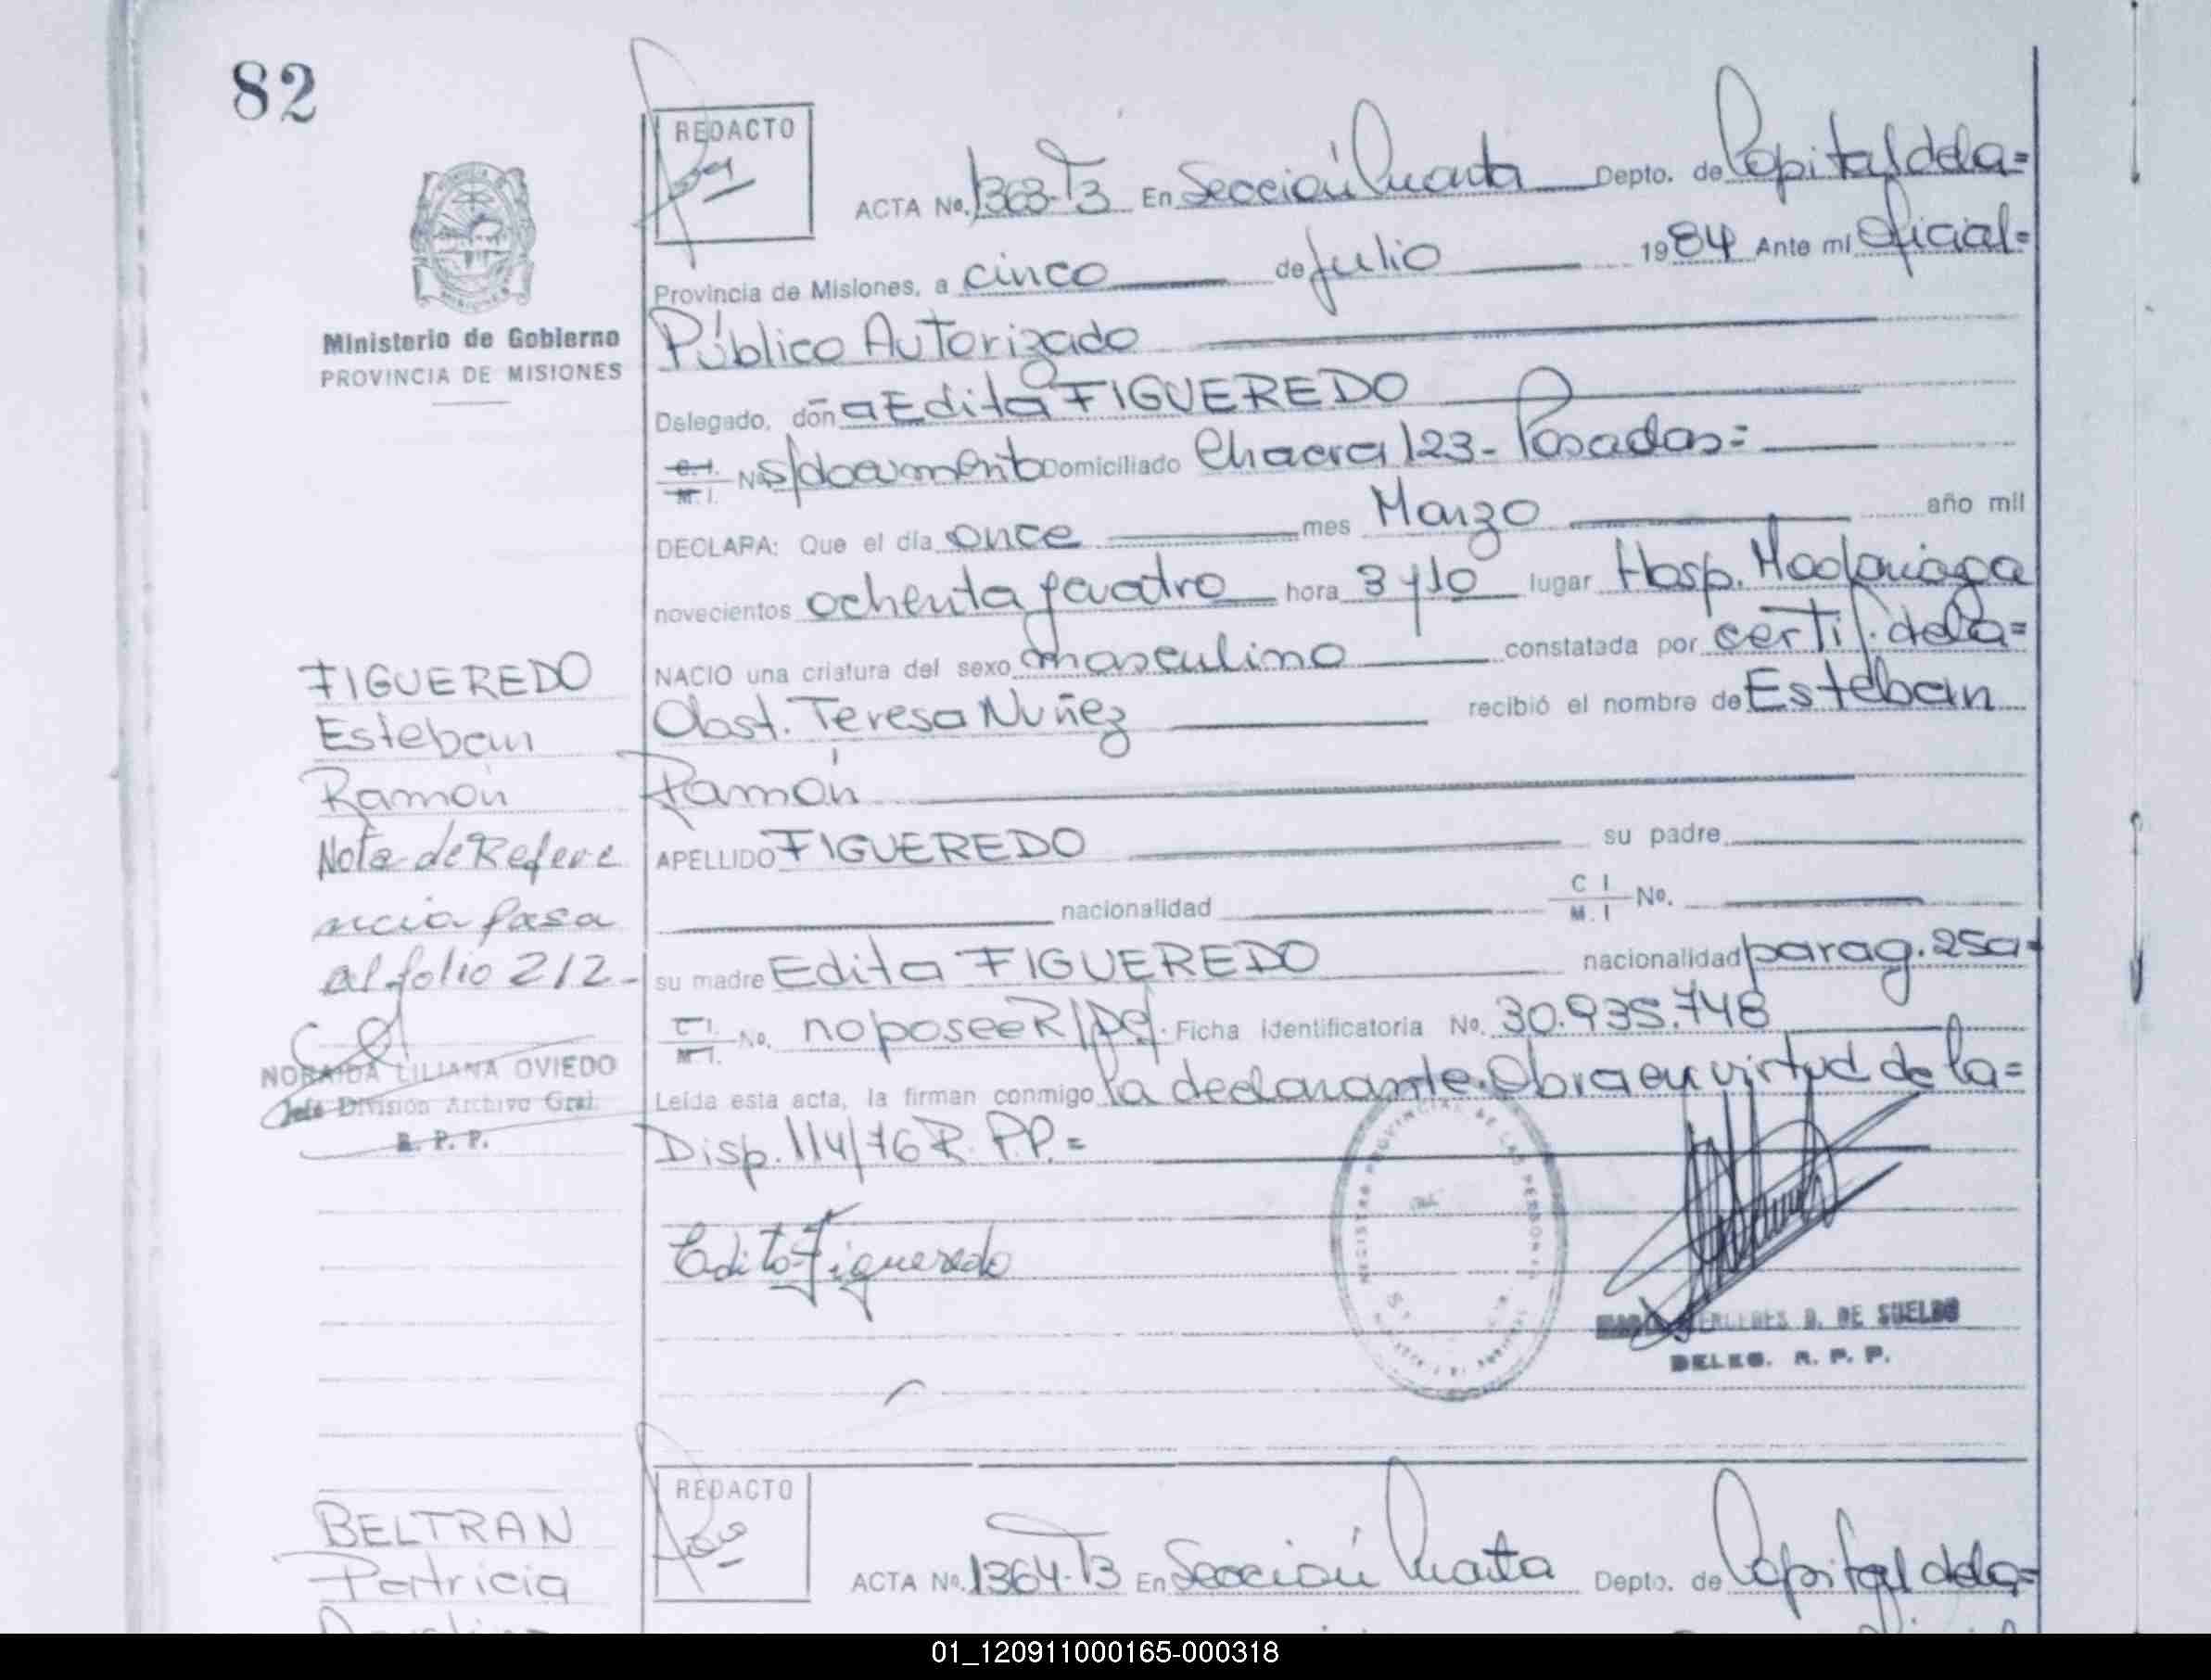 82
REDACTO
ACTA Nº. 1363-T3 En Sección Cuarta Depto. de Capital dela=
Provincia de Misiones, a cinco de Julio 1984 Ante mi Oficial=
Público Autorizado
Delegado, don a Edita FIGUEREDO
C.I. M.I. Nº s/documento Domiciliado Chacra 123- Posadas=
DECLARA: Que el día once mes Marzo año mil
novecientos ochenta y cuatro hora 3 y 10 lugar Hosp. Madariaga
NACIO una criatura del sexo masculino constatada por certif. dela=
Obst. Teresa Nuñez recibió el nombre de Esteban
Ramón
APELLIDO FIGUEREDO su padre
nacionalidad C I M. I Nº.
su madre Edita FIGUEREDO nacionalidad parag. 25a=
C.I. M.I. Nº. no posee R/Dg. Ficha Identificatoria Nº. 30.935.748
Leída esta acta, la firman conmigo la declarante. Obra en virtud de la=
Disp. 114/76 R. P.P.=
Edita Figueredo
REGISTRO PROVINCIAL DE LAS PERSONAS
DE SUELDO
DELEG. R. P. P.
Ministerio de Gobierno
PROVINCIA DE MISIONES
FIGUEREDO
Esteban
Ramón
Nota de Refere
ncia pasa
al folio 212-
NORAIDA LILIANA OVIEDO
Jefe División Archivo Gral.
R. P. P.
BELTRAN
Patricia
REDACTO
ACTA Nº. 1364-T3 En Sección Cuarta Depto. de Capital dela=
01_120911000165-000318